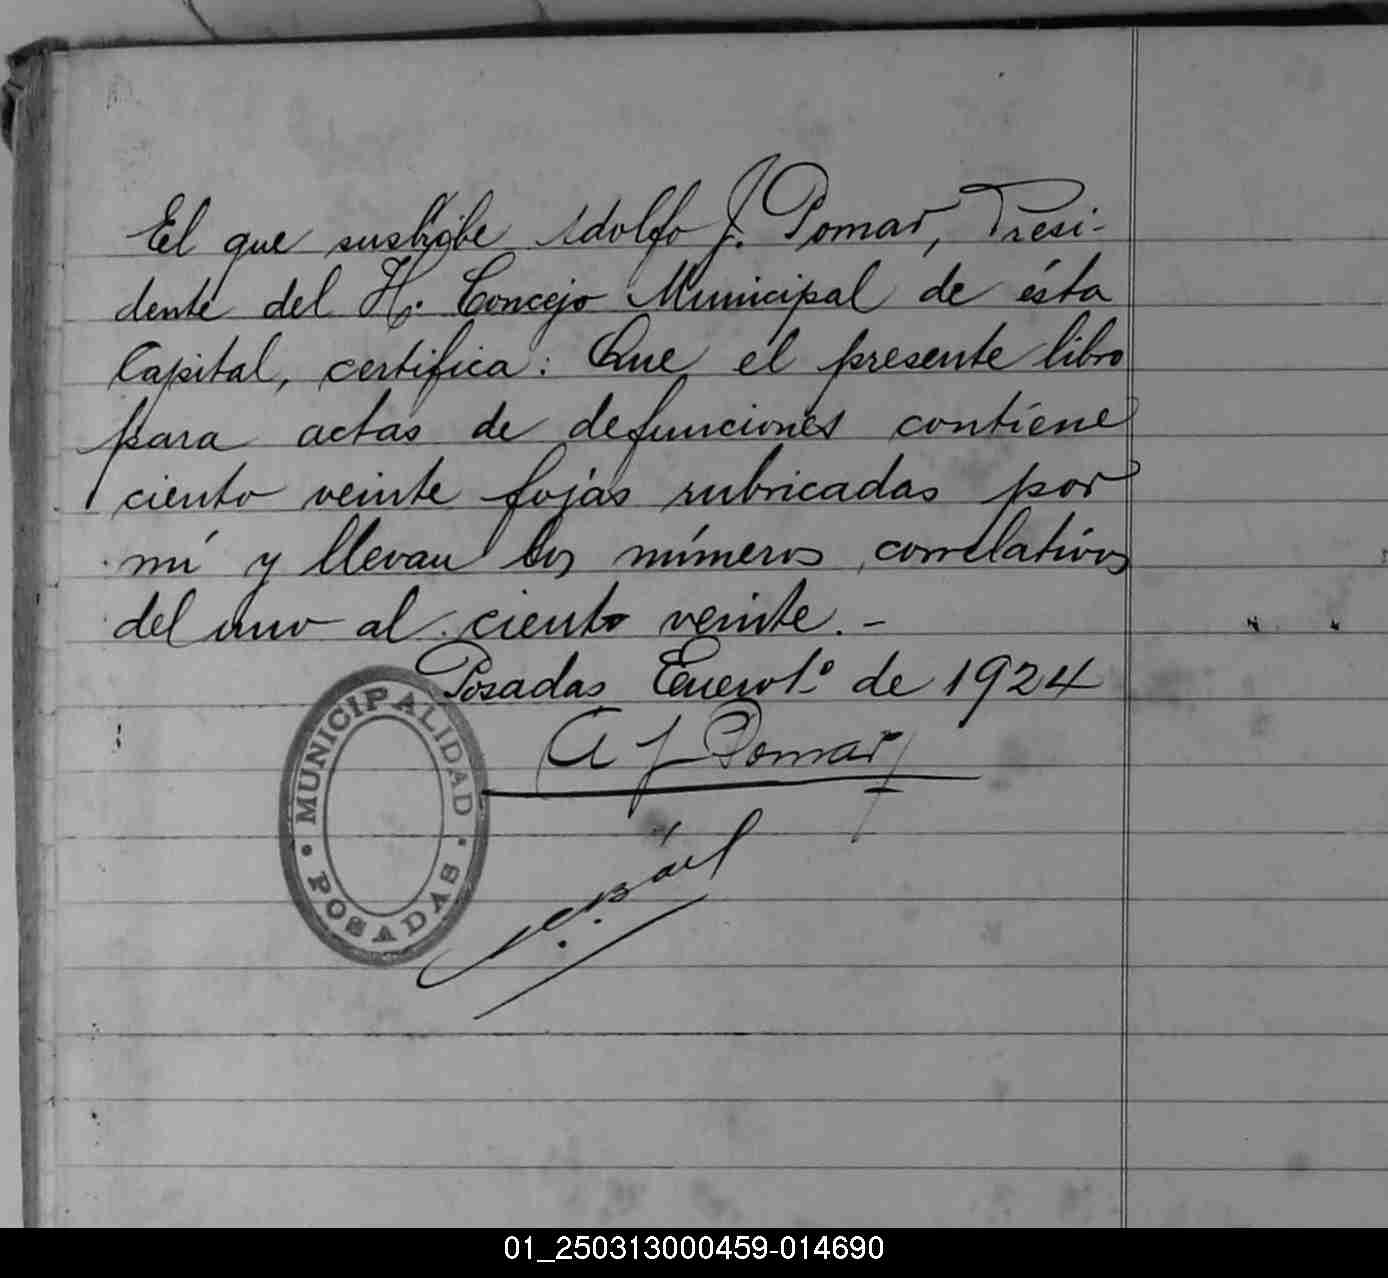 El que suskribe Adolfo J. Pomar, Presi-
dente del H. Concejo Municipal de ésta
Capital, certifica: Que el presente libro
para actas de defunciones contiene
ciento veinte fojas rubricadas por
mí y llevan los números correlativos
del uno al ciento veinte.-
Posadas Enero 1º de 1924
A J Pomar
MUNICIPALIDAD
· POSADAS ·
01_250313000459-014690